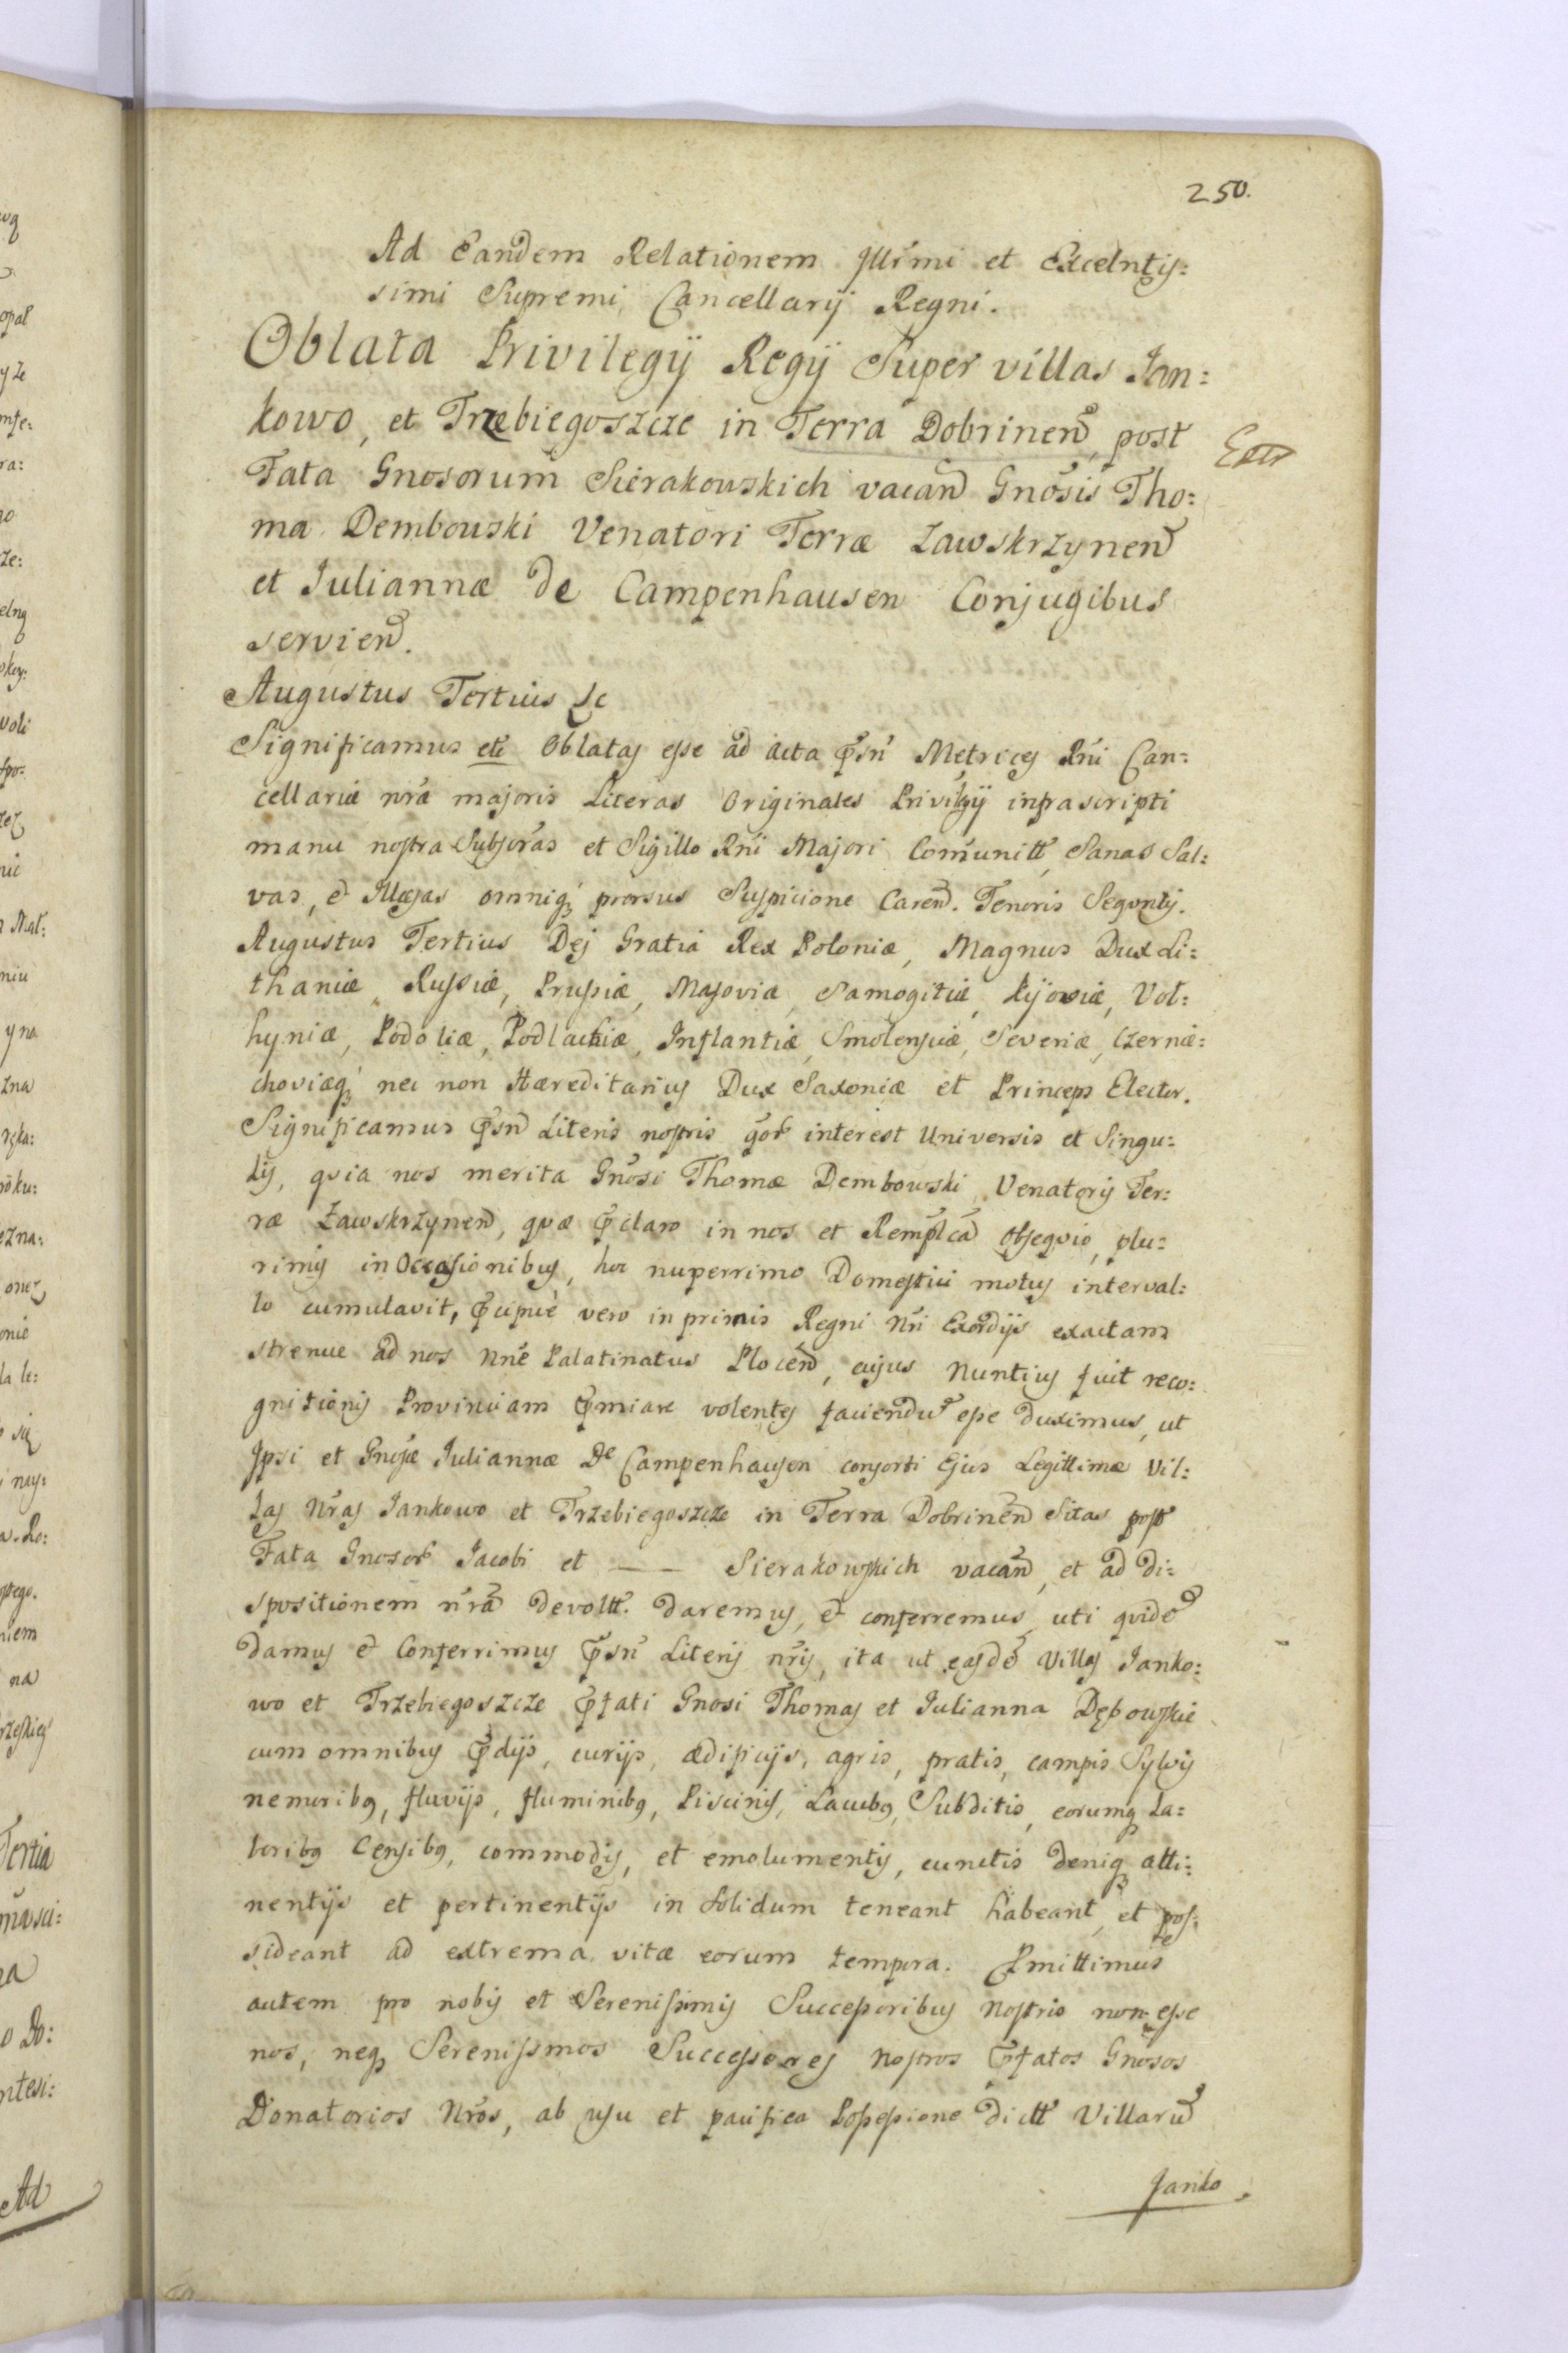 250.
Ad Eandem Relationem Jllr̃mi et Excelntis:
simi Supremi Cancellarij Regni.
Oblata Privilegij Regij Super villas Jan:
kowo, et Trzebiegoszcze in Terra Dobrinen̄, post
Extr
Fata Gnosorum̄ Sierakowskich vacan̄ Gnōsis Tho:
ma Dembouski Venatori Terræ Zawskrzynen̄
et Juliannæ de Campenhausen Conjugibus
servien̄.
Augustus Tertius &c
Significamus etc̃ Oblatas esse ad acta p̄sn̄ Metrices Rn̄i Can:
cellariæ nr̃æ majoris Literas Originales Privilgij infrascripti
manu nostra Subscr̃as et Sigillo Rn̄i Majori Com̄unitt̄, Sanas Sal:
vas, et Illæsas omniq; prorsus Suspicione Caren̄. Tenoris Seqvntis.
Augustus Tertius Dej Gratia Rex Poloniæ, Magnus Dux Li:
thaniæ, Russiæ, Prussiæ, Masoviæ, Samogitiæ, Kijoviæ, Vol:
hyniæ, Podoliæ, Podlachiæ, Inflantiæ, Smolensciæ, Severiæ, Czernie:
choviæq; nec non Hæreditarius Dux Saxoniæ et Princeps Elector.
Significamus p̄sn̄ Literis nostris qor̃ interest Universis et Singu:
lis, qvia nos merita Gnōsi Thomæ Dembowski Venatoris Ter:
ræ Zawskrzynen̄, qvæ p̄claro in nos et Remp̄lcā Obseqvio, plu:
rimis in Occasionibus, hoc nuperrimo Domestici motus interval:
lo cumulavit, p̄cipuè vero in primis Regni Nr̃i Exordijs exactam
strenue ad nos Nn̄e Palatinatus Plocen̄, cujus Nuntius fuit reco:
gnitionis Provinciam p̄miare volentes faciendū esse duximus, ut
Jpsi et Gnosæ Juliannæ De Campenhausen consorti Ejus Legittimæ Vil:
las Nr̃as Jankowo et Trzebiegoszcze in Terra Dobrinen̄ Sitas post
Fata Gnosor̃ Jacobi et —— Sierakowskich vacan̄, et ad di:
spositionem nr̃ā devoltt̄. daremus, et conferremus, uti qvidē
damus et Conferrimus p̄sn̄ Literis nr̃is, ita ut easdē Villas Janko:
wo et Trzebiegoszcze p̄fati Gnosi Thomas et Julianna Dębowskie
cum omnibus p̄dijs, curijs, ædificijs, agris, pratis, campis Sylvis
nemoribq, fluvijs, fluminibq, Piscinis, Lacubq, Subditis, eorumq La:
boribq Censibq, commodis, et emolumentis, cunctis deniq; atti:
nentijs et pertinentijs in Solidum teneant habeant, et pos:
sideant ad extrema vitæ eorum tempora. Pmittimus
autem pro nobis et Serenissimis Successoribus Nostris non esse
nos, neq; Serenissmos Successores Nostros p̄fatos Gnōsos
Donatorios Nr̃os, ab usu et pacifica Possessione dictt̄ Villarū
Janko